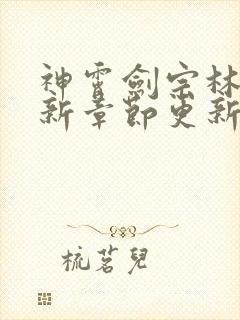 神霄劍宗林
新章節更新
梳茗兒